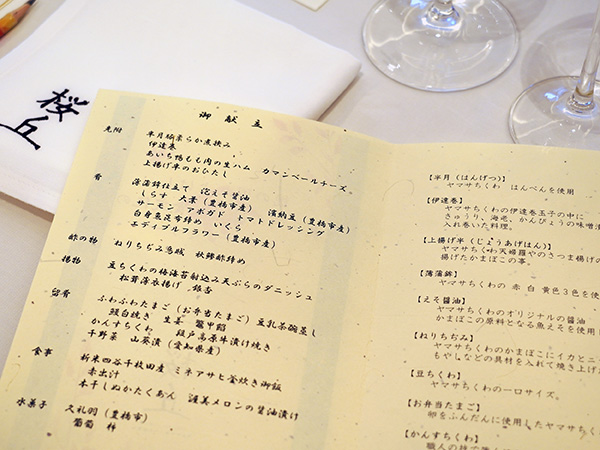 桜丘
御献立
先附
半月極柔らか煮挟み
伊達巻
あいち鴨もも肉の生ハム カマンベールチーズ
上揚げ半のおひたし
肴
蒲蒲鉾仕立て 泡えそ醤油
しらす 大葉(豊橋市産) 濱納豆(豊橋市産)
サーモン アボガド トマトドレッシング
白身魚昆布締め いくら
エディブルフラワー(豊橋市産)
酢の物
ねりちぢみ
揚物
豆ちくわの梅海苔射込み天ぷらのダニッシュ
松茸薄衣揚げ 銀杏
留肴
ふわふわたまご(お弁当たまご)豆乳茶碗蒸し
鰻白焼き 生姜 鼈甲餡
かんすちくわ 段戸高原牛漬け焼き
千野菜 山葵漬(愛知県産)
食事
新米四谷千枚田産 ミネアサヒ釜炊き御飯
赤出汁
本干しぬかたくあん 渥美メロンの醤油漬け
水菓子
次礼羽(豊橋市)
葡萄 柿
【半月(はんげつ)】
ヤマサちくわ はんぺんを使用
【伊達巻】
ヤマサちくわの伊達巻玉子の中に
きゅうり、海老、かんぴょうの味噌漬
入れ巻いた料理。
【上揚げ半(じょうあげはん)】
ヤマサちくわ天婦羅やのさつま揚げの
揚げたかまぼこの事。
【蒲蒲鉾】
ヤマサちくわの 赤 白 黄色3色を使
【えそ醤油】
ヤマサちくわのオリジナルの醤油
かまぼこの原料となる魚えそを使用し
【ねりちぢみ】
ヤマサちくわのかまぼこにイカとニラ
もやしなどの具材を入れて焼き上げ
【豆ちくわ】
ヤマサちくわの一口サイズ。
【お弁当たまご】
卵をふんだんに使用したヤマサちく
【かんすちくわ】
職人の技で